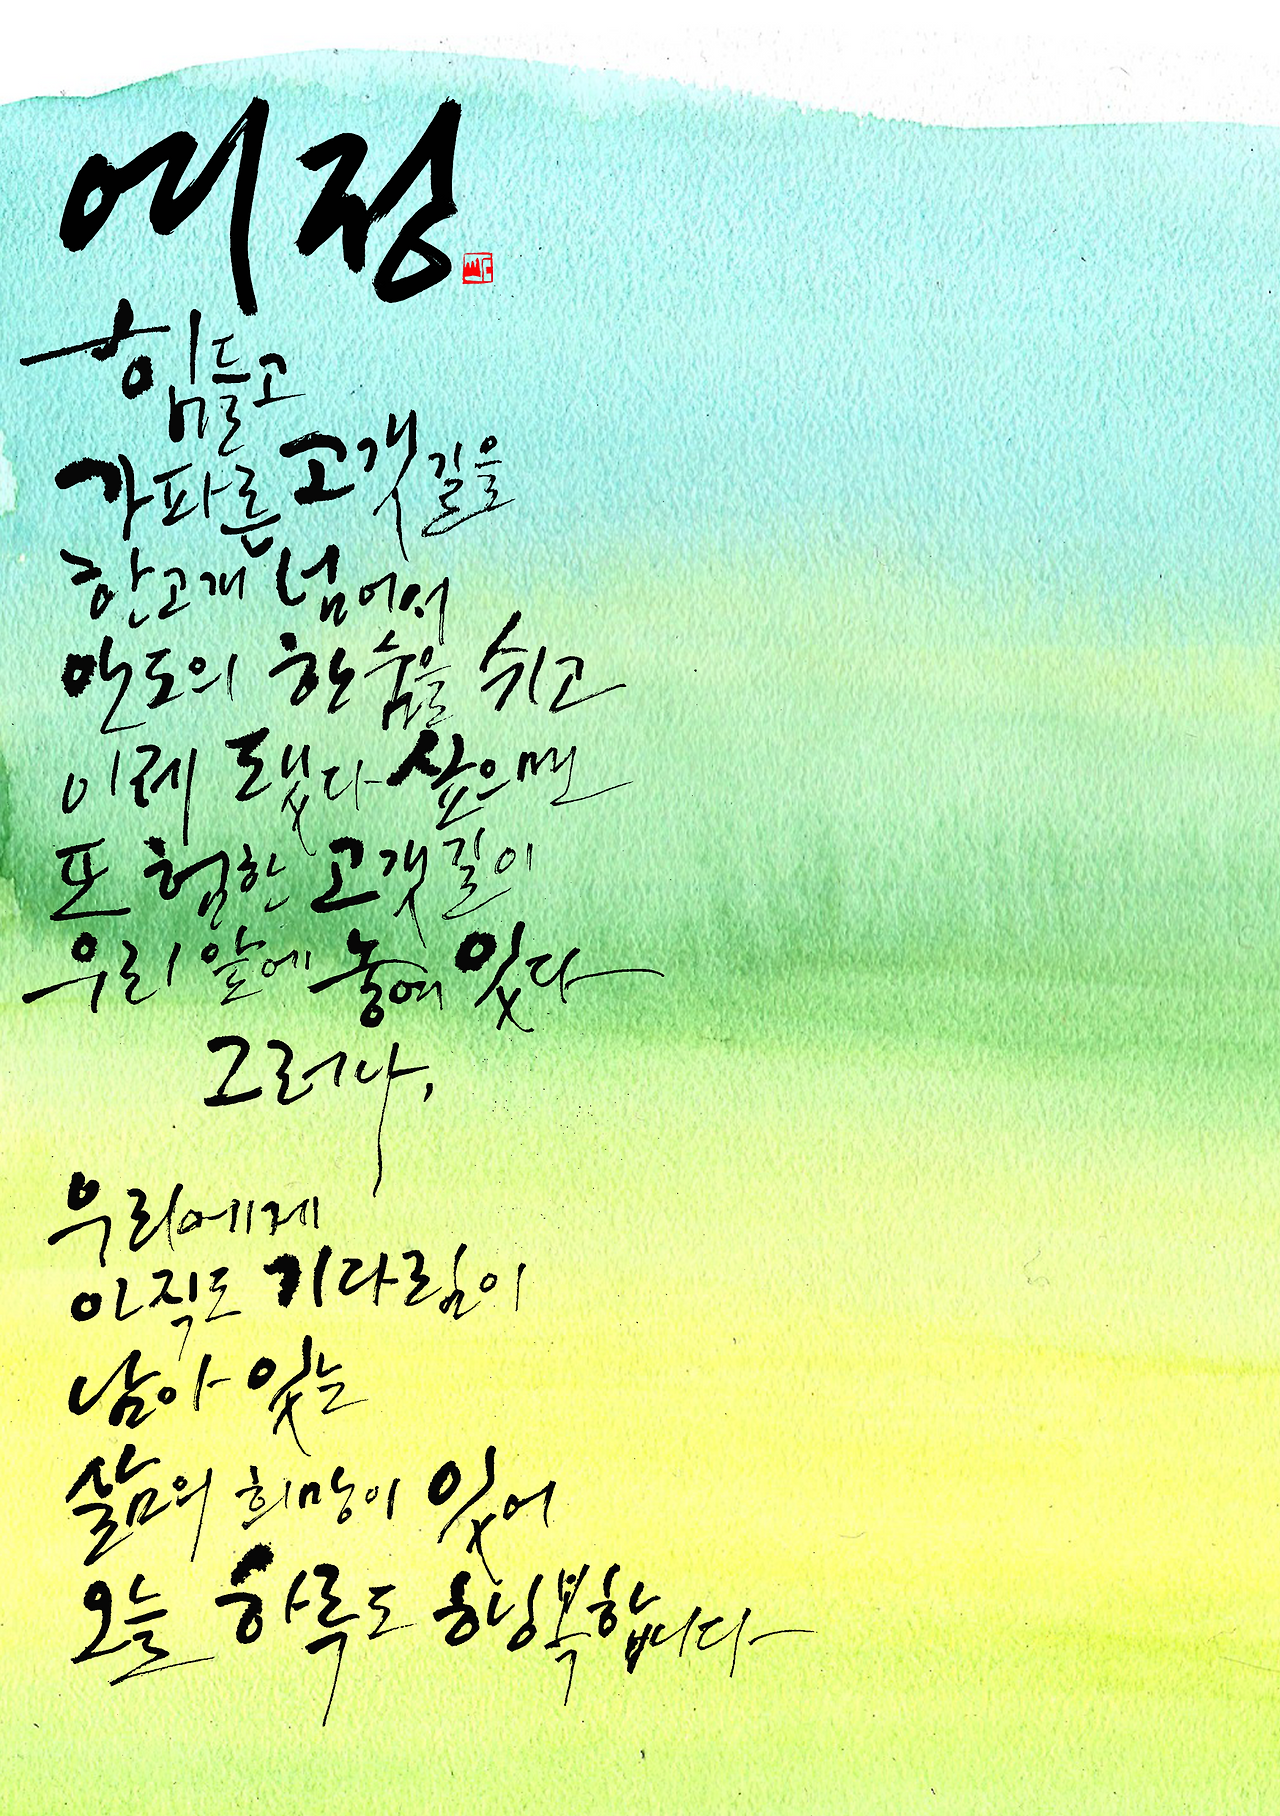 여정
힘들고
가파른 고갯길을
한고개 넘어서
안도의 한숨을 쉬고
이제 됐다 싶으면
또 험한 고갯길이
우리 앞에 놓여 있다
그러나,
우리에게
아직도 기다림이
남아 있는
삶의 희망이 있어
오늘 하루도 행복합니다